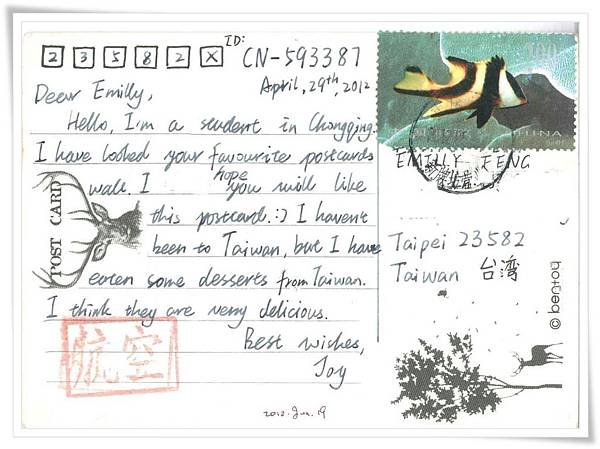 2 3 5 8 2 X
ID:
CN-593387
April, 29th, 2012
Dear Emilly,
Hello, I'm a student in Chongqing.
I have looked your favourite postcards
wall. I hope you will like
this postcard.:) I haven't
been to Taiwan, but I have
eaten some desserts from Taiwan.
I think they are very delicious.
Best wishes,
Joy
2012. Jun. 19
POST CARD
航空
100
CHINA
EMILLY FENG
Taipei 23582
Taiwan 台湾
© bentoy